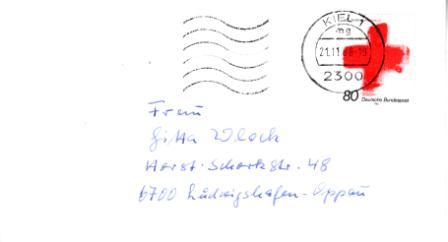 KIEL 1
mg
21.11.88-19
2300
80 Deutsche Bundespost
Frau
Gitta Wloch
Horst-Schork-Str. 48
6700 Ludwigshafen-Oppau